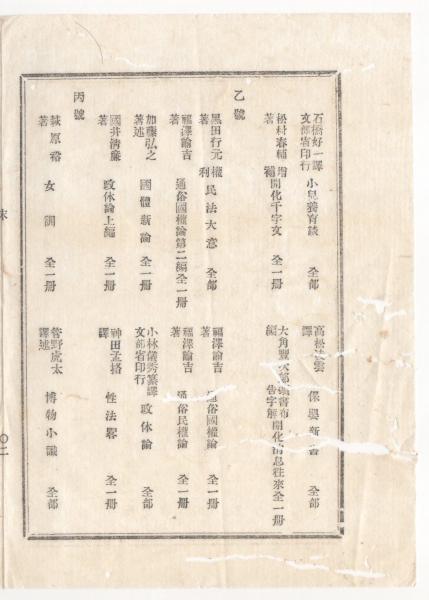 石橋好一譯
文部省印行 小兒養育談 全部
高松凌雲
譯 保嬰新書 全部
松村春輔 增
著 補 開化千字文 全一冊
大角豐次郎 御布
編 告字解 開化消息往來 全一冊
乙號
黑田行元 權
著 利 民法大意 全部
福澤諭吉
著 通俗國權論 全一冊
福澤諭吉
著 通俗國權論第二編 全一冊
福澤諭吉
著 通俗民權論 全一冊
加藤弘之
著述 國體新論 全一冊
小林儀秀纂譯
文部省印行 政体論 全部
國井淸廉
著 政体論上編 全一冊
神田孟恪
譯 性法畧 全一冊
丙號
萩原裕
著 女訓 全一冊
菅野虎太
譯述 博物小識 全部
末
〇二